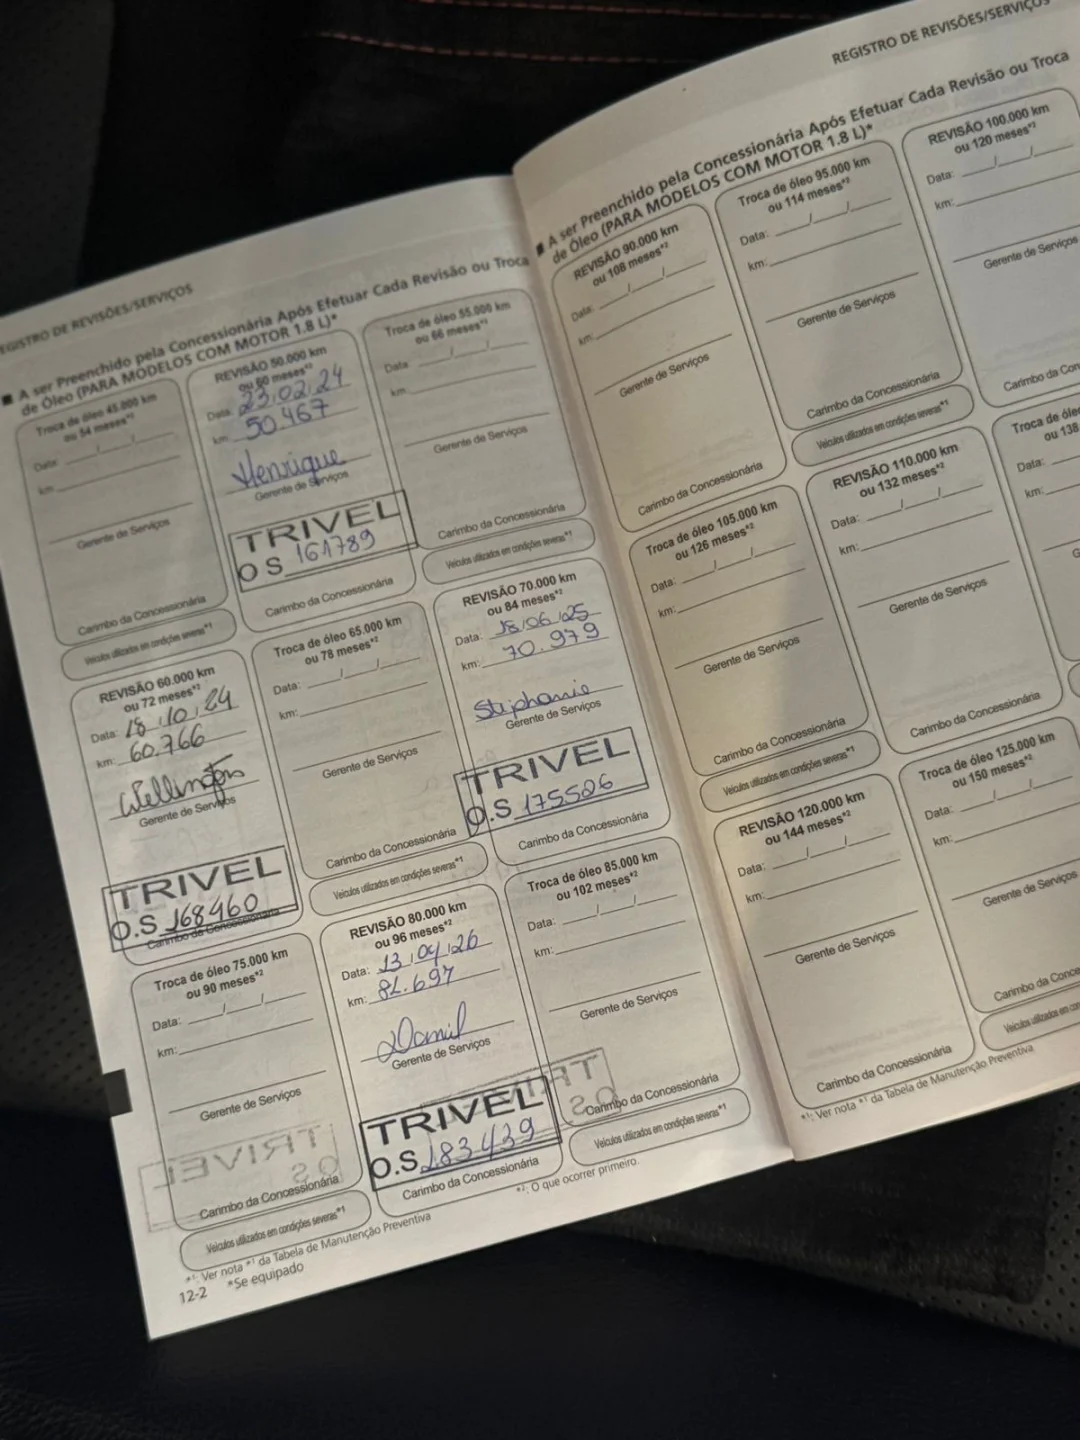 EGISTRO DE REVISÕES/SERVIÇOS
■ A ser Preenchido pela Concessionária Após Efetuar Cada Revisão ou Troca
de Óleo (PARA MODELOS COM MOTOR 1.8 L)*
Troca de óleo 45.000 km
ou 54 meses*²
Data: ___/___/___
km:
Gerente de Serviços
Carimbo da Concessionária
Veículos utilizados em condições severas*¹
REVISÃO 50.000 km
ou 60 meses*²
Data: 23/02/24
km: 50.467
Henrique
Gerente de Serviços
TRIVEL
O S 161789
Carimbo da Concessionária
Troca de óleo 55.000 km
ou 66 meses*²
Data: ___/___/___
km:
Gerente de Serviços
Carimbo da Concessionária
Veículos utilizados em condições severas*¹
REVISÃO 60.000 km
ou 72 meses*²
Data: 18/10/24
km: 60.766
Wellington
Gerente de Serviços
TRIVEL
O.S 168460
Carimbo da Concessionária
Troca de óleo 65.000 km
ou 78 meses*²
Data: ___/___/___
km:
Gerente de Serviços
Carimbo da Concessionária
Veículos utilizados em condições severas*¹
REVISÃO 70.000 km
ou 84 meses*²
Data: 18/06/25
km: 70.979
Stephanie
Gerente de Serviços
TRIVEL
O.S 175526
Carimbo da Concessionária
Troca de óleo 75.000 km
ou 90 meses*²
Data: ___/___/___
km:
Gerente de Serviços
Carimbo da Concessionária
Veículos utilizados em condições severas*¹
REVISÃO 80.000 km
ou 96 meses*²
Data: 13/04/26
km: 81.697
Gerente de Serviços
TRIVEL
O.S 183439
Carimbo da Concessionária
Troca de óleo 85.000 km
ou 102 meses*²
Data: ___/___/___
km:
Gerente de Serviços
Carimbo da Concessionária
Veículos utilizados em condições severas*¹
*¹: Ver nota *¹ da Tabela de Manutenção Preventiva
*²: O que ocorrer primeiro.
12-2 *Se equipado
REGISTRO DE REVISÕES/SERVIÇOS
■ A ser Preenchido pela Concessionária Após Efetuar Cada Revisão ou Troca
de Óleo (PARA MODELOS COM MOTOR 1.8 L)*
REVISÃO 90.000 km
ou 108 meses*²
Data: ___/___/___
km:
Gerente de Serviços
Carimbo da Concessionária
Troca de óleo 95.000 km
ou 114 meses*²
Data: ___/___/___
km:
Gerente de Serviços
Carimbo da Concessionária
Veículos utilizados em condições severas*¹
REVISÃO 100.000 km
ou 120 meses*²
Data: ___/___/___
km:
Gerente de Serviços
Carimbo da Con
Troca de óleo 105.000 km
ou 126 meses*²
Data: ___/___/___
km:
Gerente de Serviços
Carimbo da Concessionária
Veículos utilizados em condições severas*¹
REVISÃO 110.000 km
ou 132 meses*²
Data: ___/___/___
km:
Gerente de Serviços
Carimbo da Concessionária
Troca de óleo
ou 138
Data:
km:
G
REVISÃO 120.000 km
ou 144 meses*²
Data: ___/___/___
km:
Gerente de Serviços
Carimbo da Concessionária
Troca de óleo 125.000 km
ou 150 meses*²
Data: ___/___/___
km:
Gerente de Serviços
Carimbo da Conces
Veículos utilizados em con
*¹: Ver nota *¹ da Tabela de Manutenção Preventiva